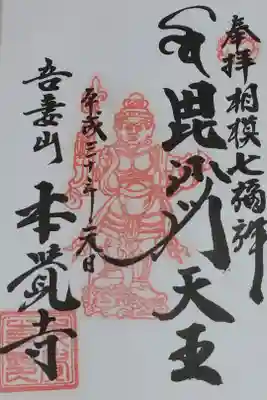 奉拝相模七福神
毘沙門天王
平成三十年
吾妻山
本覚寺